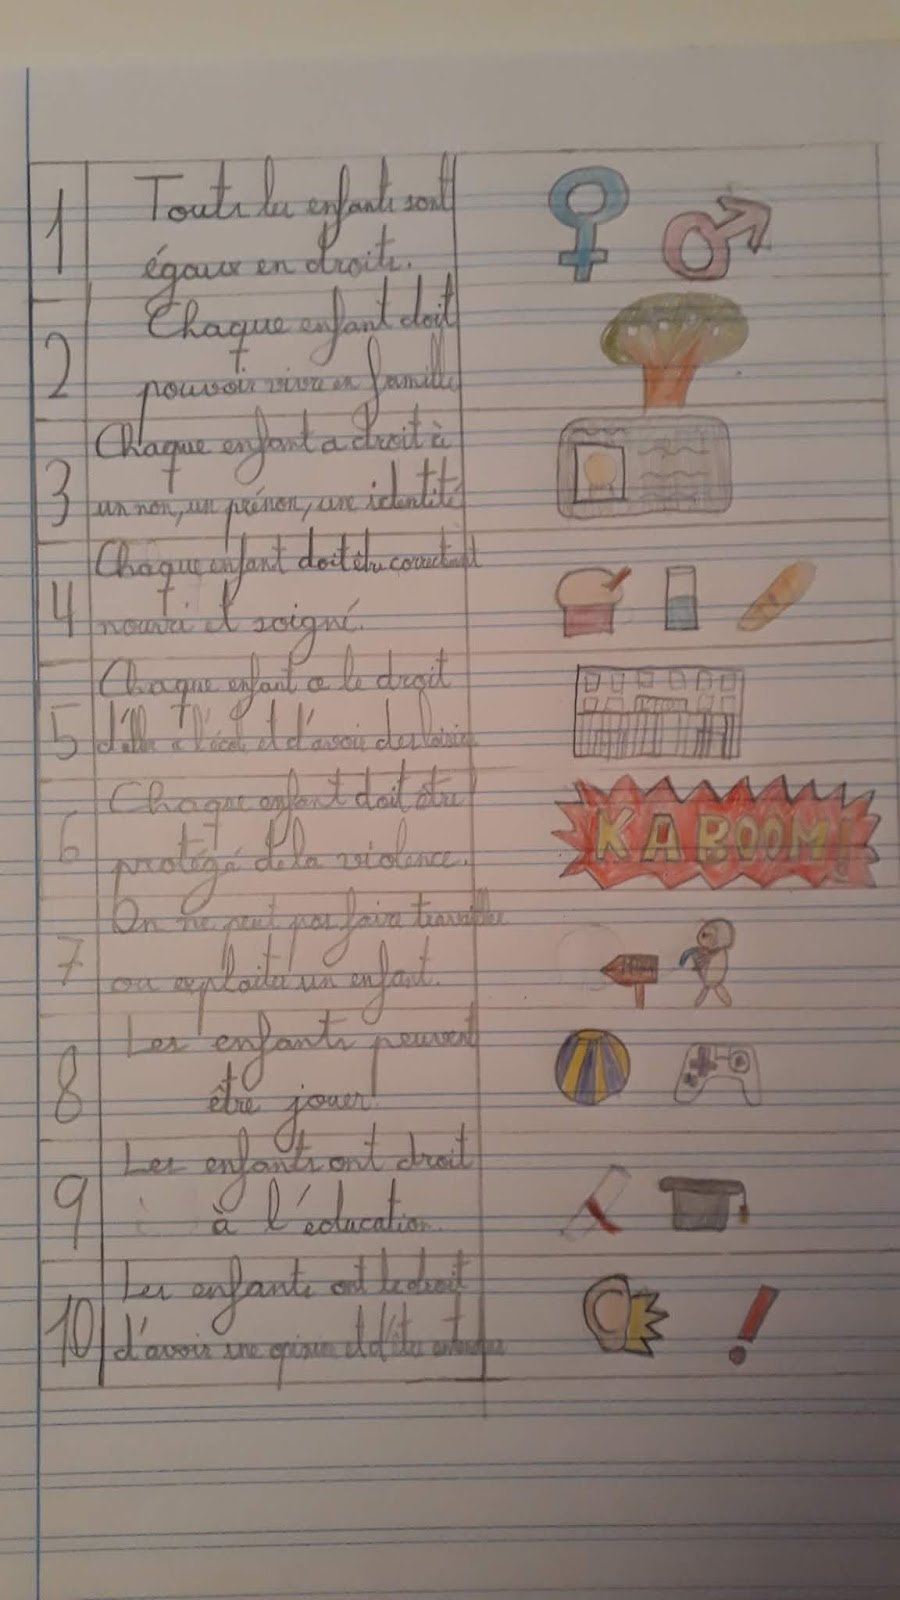 1
Touts les enfants sont
égaux en droits.
2
Chaque enfant doit
pouvoir vivre en famille
3
Chaque enfant a droit à
un non, un prénon, une identité
4
Chaque enfant doit être correctement
nourri et soigné.
5
Chaque enfant a le droit
d'aller à l'école et d'avoir des loisirs
6
Chaque enfant doit être
protégé de la violence.
KABOOM!
7
On ne peut pas faire travailler
ou exploiter un enfant.
8
Les enfants peuvent
être jouer!
9
Les enfants ont droit
à l'éducation.
10
Les enfants ont le droit
d'avoir une opinion et d'être